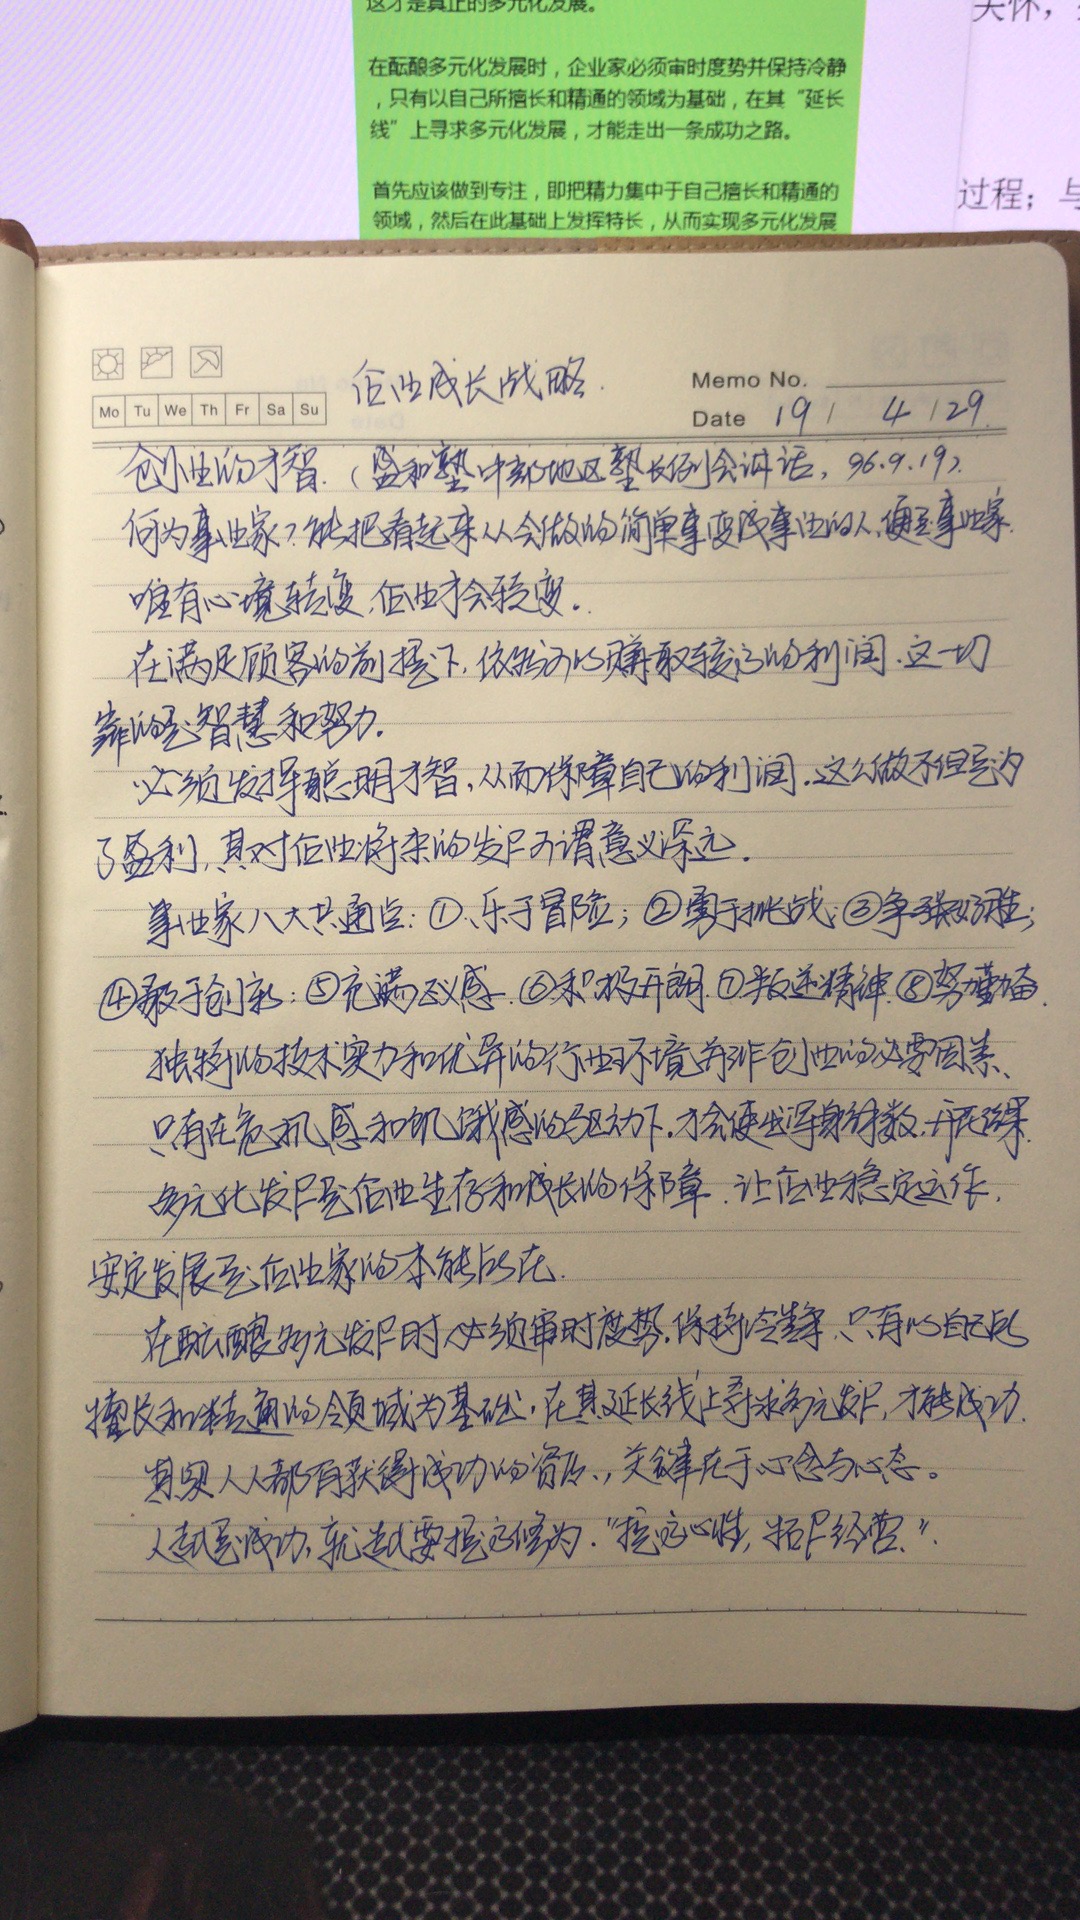 这才是真正的多元化发展。
关怀，
在酝酿多元化发展时，企业家必须审时度势并保持冷静
，只有以自己所擅长和精通的领域为基础，在其“延长
线”上寻求多元化发展，才能走出一条成功之路。
首先应该做到专注，即把精力集中于自己擅长和精通的
领域，然后在此基础上发挥特长，从而实现多元化发展
过程；与
企业成长战略.
Memo No.
Mo Tu We Th Fr Sa Su
Date 19/ 4/29
创业的才智.（盛和塾中部地区塾长例会讲话, 96.9.19）.
何为事业家？能把看起来从会做的简单事变成事业的人,便是事业家.
唯有心境转变,企业才会转变。
在满足顾客的前提下,依然可以赚取较高的利润.这一切
靠的是智慧和努力.
必须发挥聪明才智,从而保障自己的利润.这么做不但是为
了盈利,其对企业将来的发展可谓意义深远.
事业家八大共通点:①.乐于冒险;②勇于挑战;③争强好胜;
④敢于创新;⑤充满正义感.⑥积极开朗.⑦叛逆精神.⑧努力勤奋.
独特的技术实力和优异的行业环境并非创业的必要因素、
只有在危机感和饥饿感的驱动下.才会使出浑身解数,开花结果.
多元化发展是企业生存和成长的保障.让企业稳定运作,
安定发展是企业家的本能所在.
在酝酿多元发展时必须审时度势.保持冷静.只有以自己所
擅长和精通的领域为基础.在其延长线上寻求多元发展,才能成功.
其实人人都有获得成功的资质,关键在于心念与心态。
人越是成功,就越要提高修为.“提高心性,拓展经营.”.